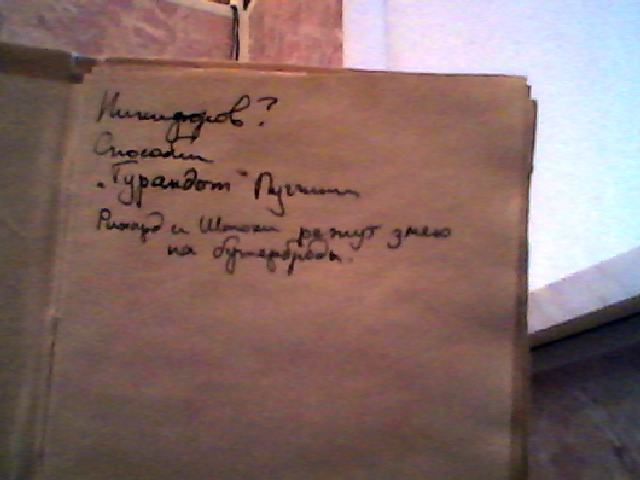 Никифоров?
Способин
„Турандот" Пуччини
Рихард и режут змею
на бутерброды.